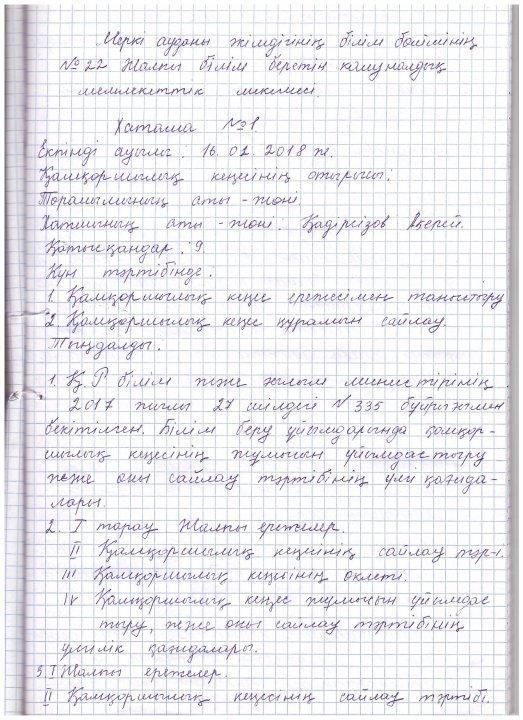 Меркі ауданы әкімдігінің білім бөлімінің
№ 22 Жалпы білім беретін камуналдық
мемлекеттік мекемесі.
Хаттама №1.
Екпінді ауылы: 16.01.2018 ж.
Қамқоршылық кеңесінің отырысы:
Төрашымының аты-жөні.
Хатшының аты-жөні. Қадірсізов
Қатысқандар: 9.
Күн тәртібінде:
1. Қамқоршылық кеңес ережесімен таныстыру
2. Қамқоршылық кеңес құрамын сайлау.
Тыңдалды.
1. Қ.Р білім және ғылым министірінің
2017 жылы 27 шілдегі №335 бұйрығымен
бекітілген. Білім беру ұйымдарында қамқор-
шылық кеңесінің жұмысын ұйымдастыру
және оны сайлау тәртібінің үлгі қағида-
лары.
2. I тарау Жалпы ережелер.
II Қамқоршылық кеңесінің сайлау тәр-і.
III Қамқоршылық кеңесінің өклеті.
IV Қамқоршылық кеңес жұмысын ұйымдас
тыру, және оны сайлау тәртібінің
үлгілік қағидалары.
3. I Жалпы ережелер.
II Қамқоршылық кеңесінің сайлау тәртібі.